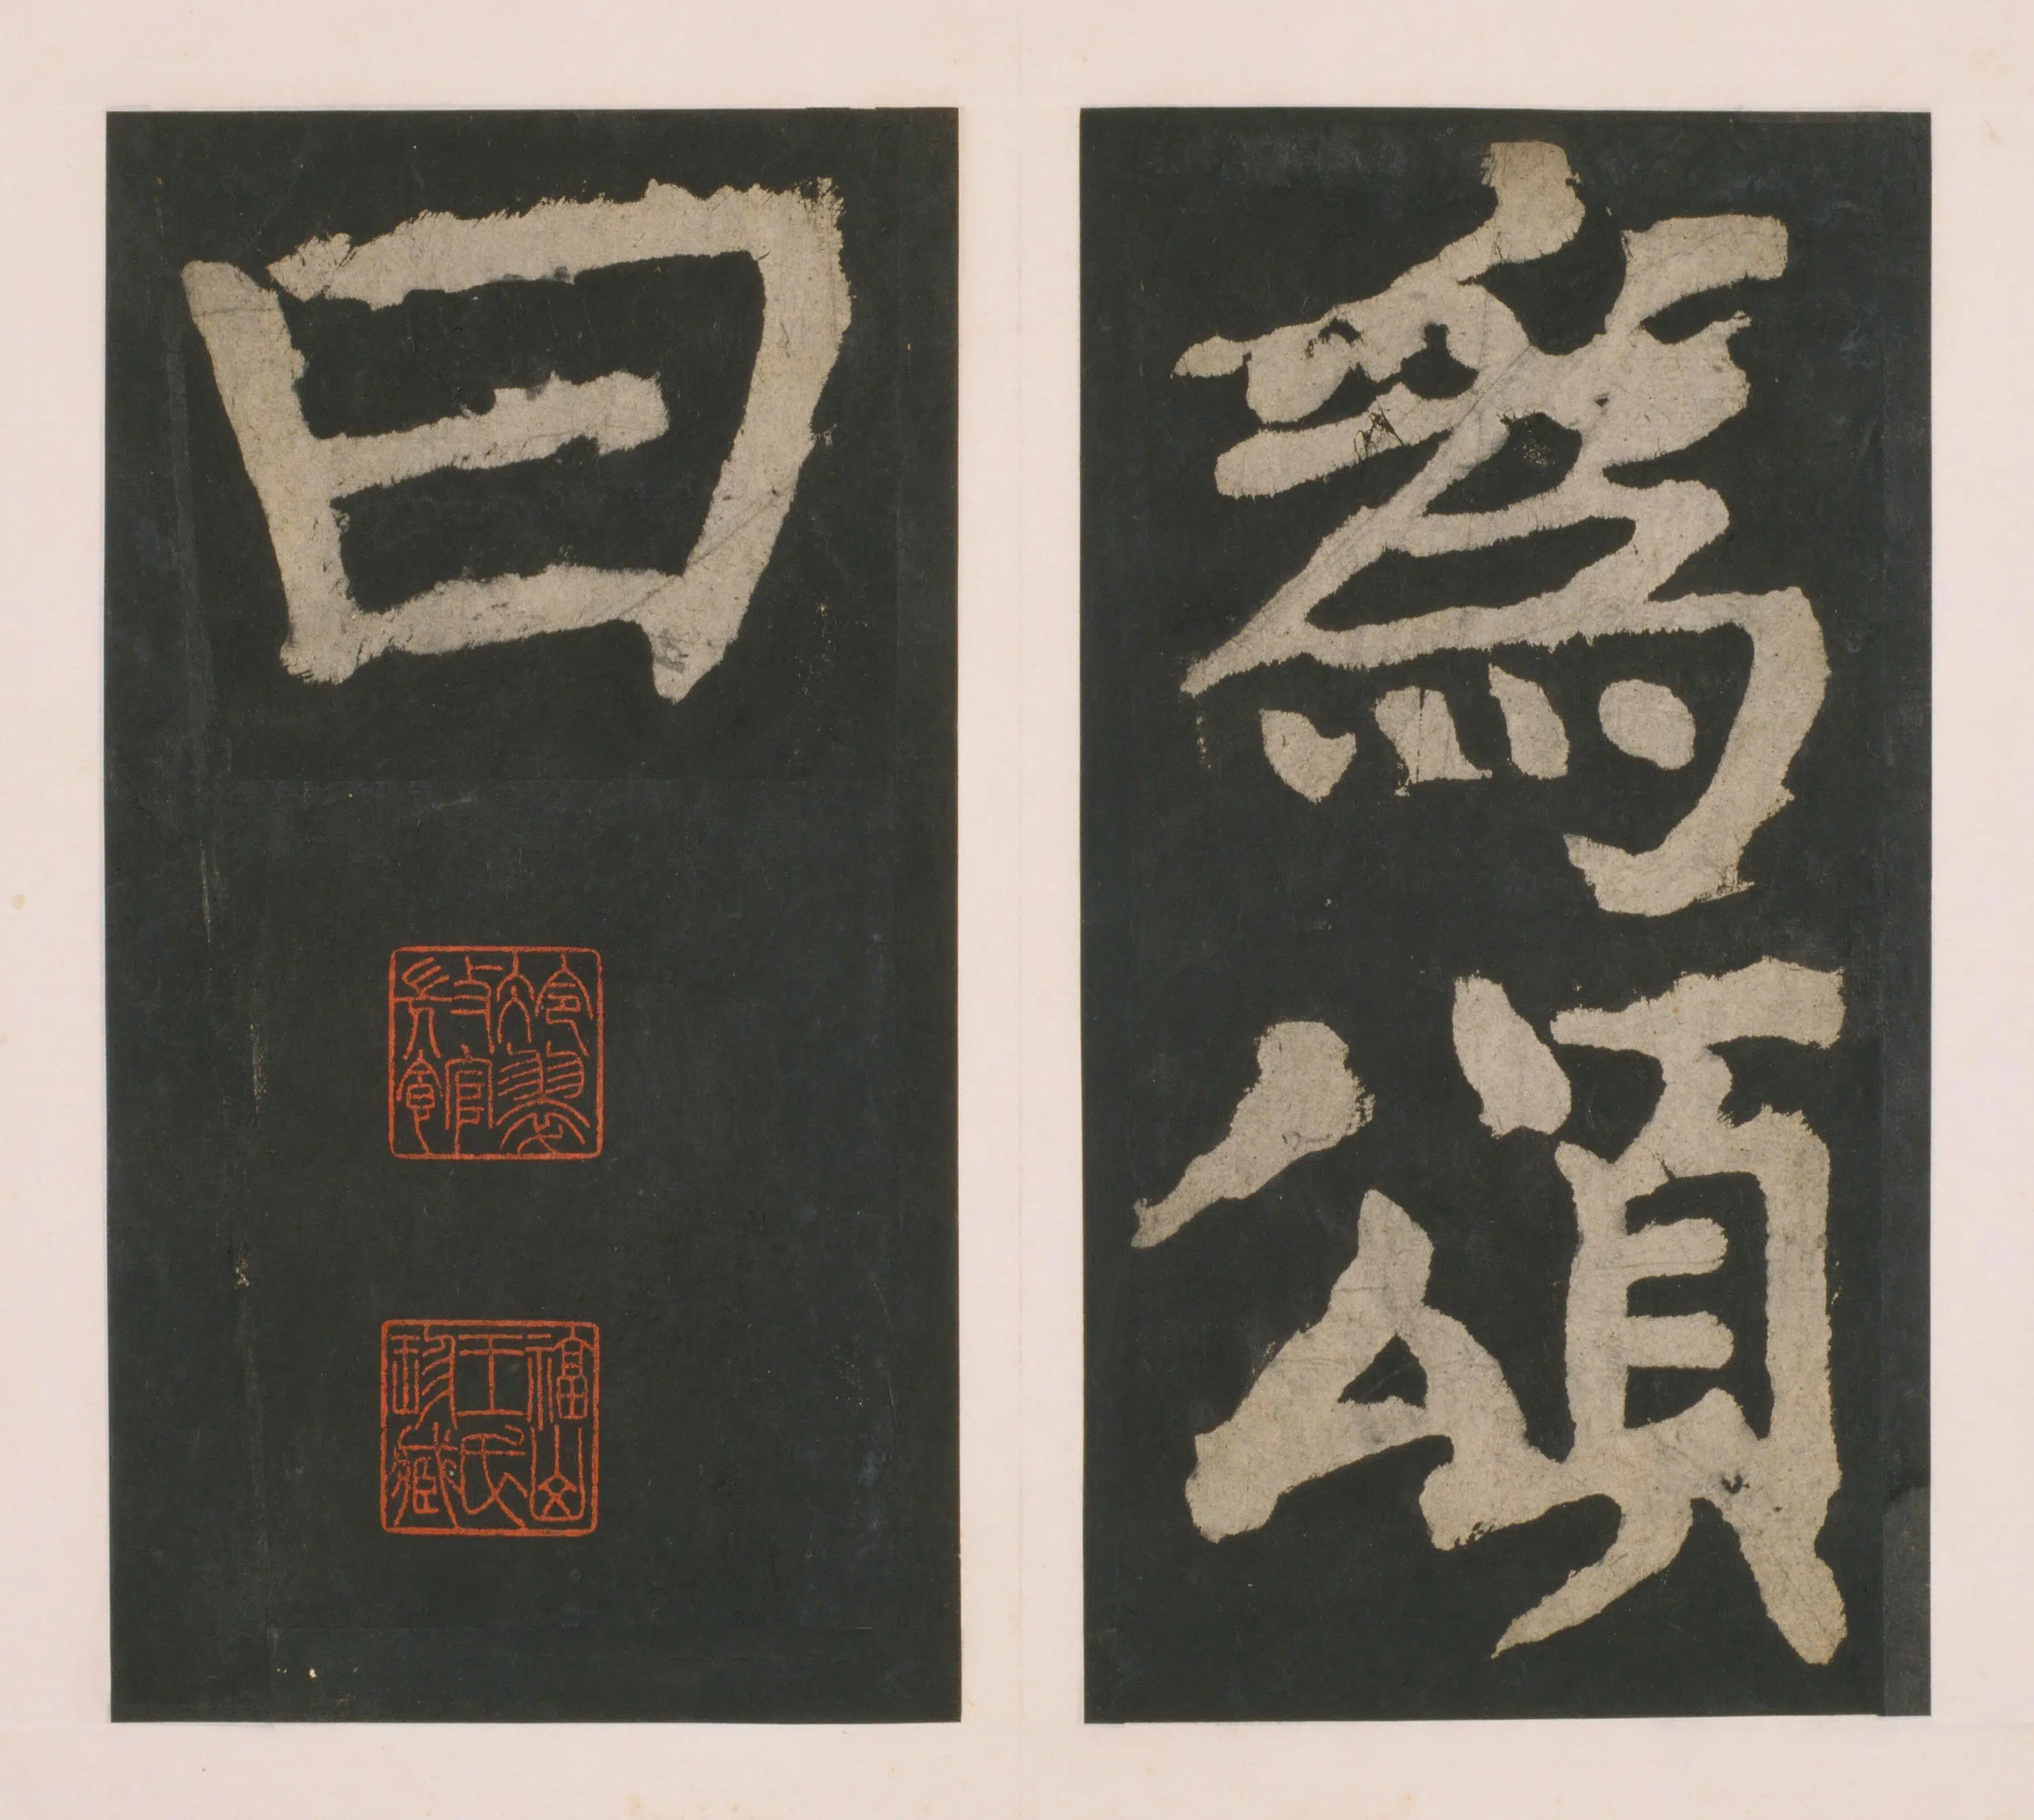 為頌
曰
福山
王氏
珍藏